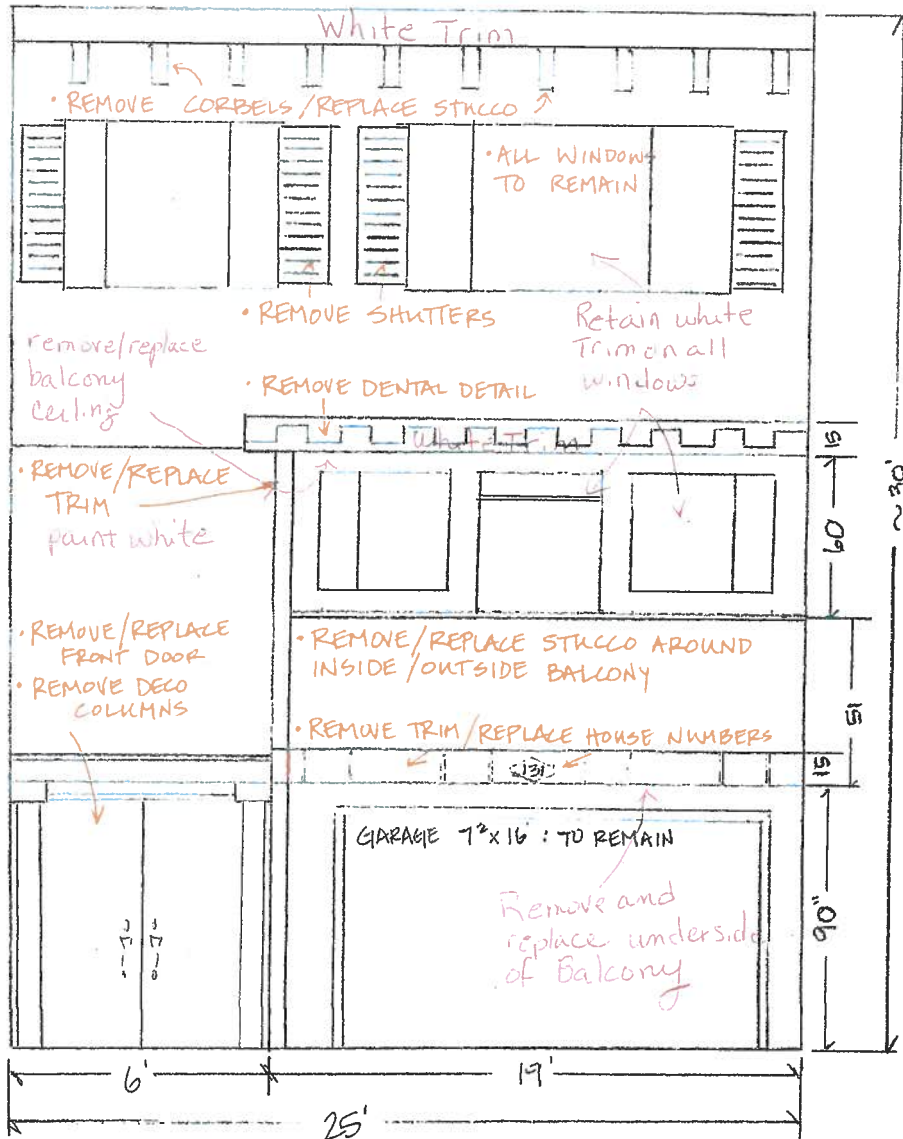 White Trim
• REMOVE CORBELS/REPLACE STUCCO
• ALL WINDOWS
TO REMAIN
• REMOVE SHUTTERS
Retain white
Trim on all
windows
remove/replace
balcony
ceiling
• REMOVE DENTAL DETAIL
White Trim
15
• REMOVE/REPLACE
TRIM
paint white
60
~30'
• REMOVE/REPLACE
FRONT DOOR
• REMOVE DECO
COLUMNS
• REMOVE/REPLACE STUCCO AROUND
INSIDE/OUTSIDE BALCONY
51
• REMOVE TRIM/REPLACE HOUSE NUMBERS
131
15
GARAGE 7²x16' : TO REMAIN
Remove and
replace underside
of Balcony
90"
6'
19'
25'